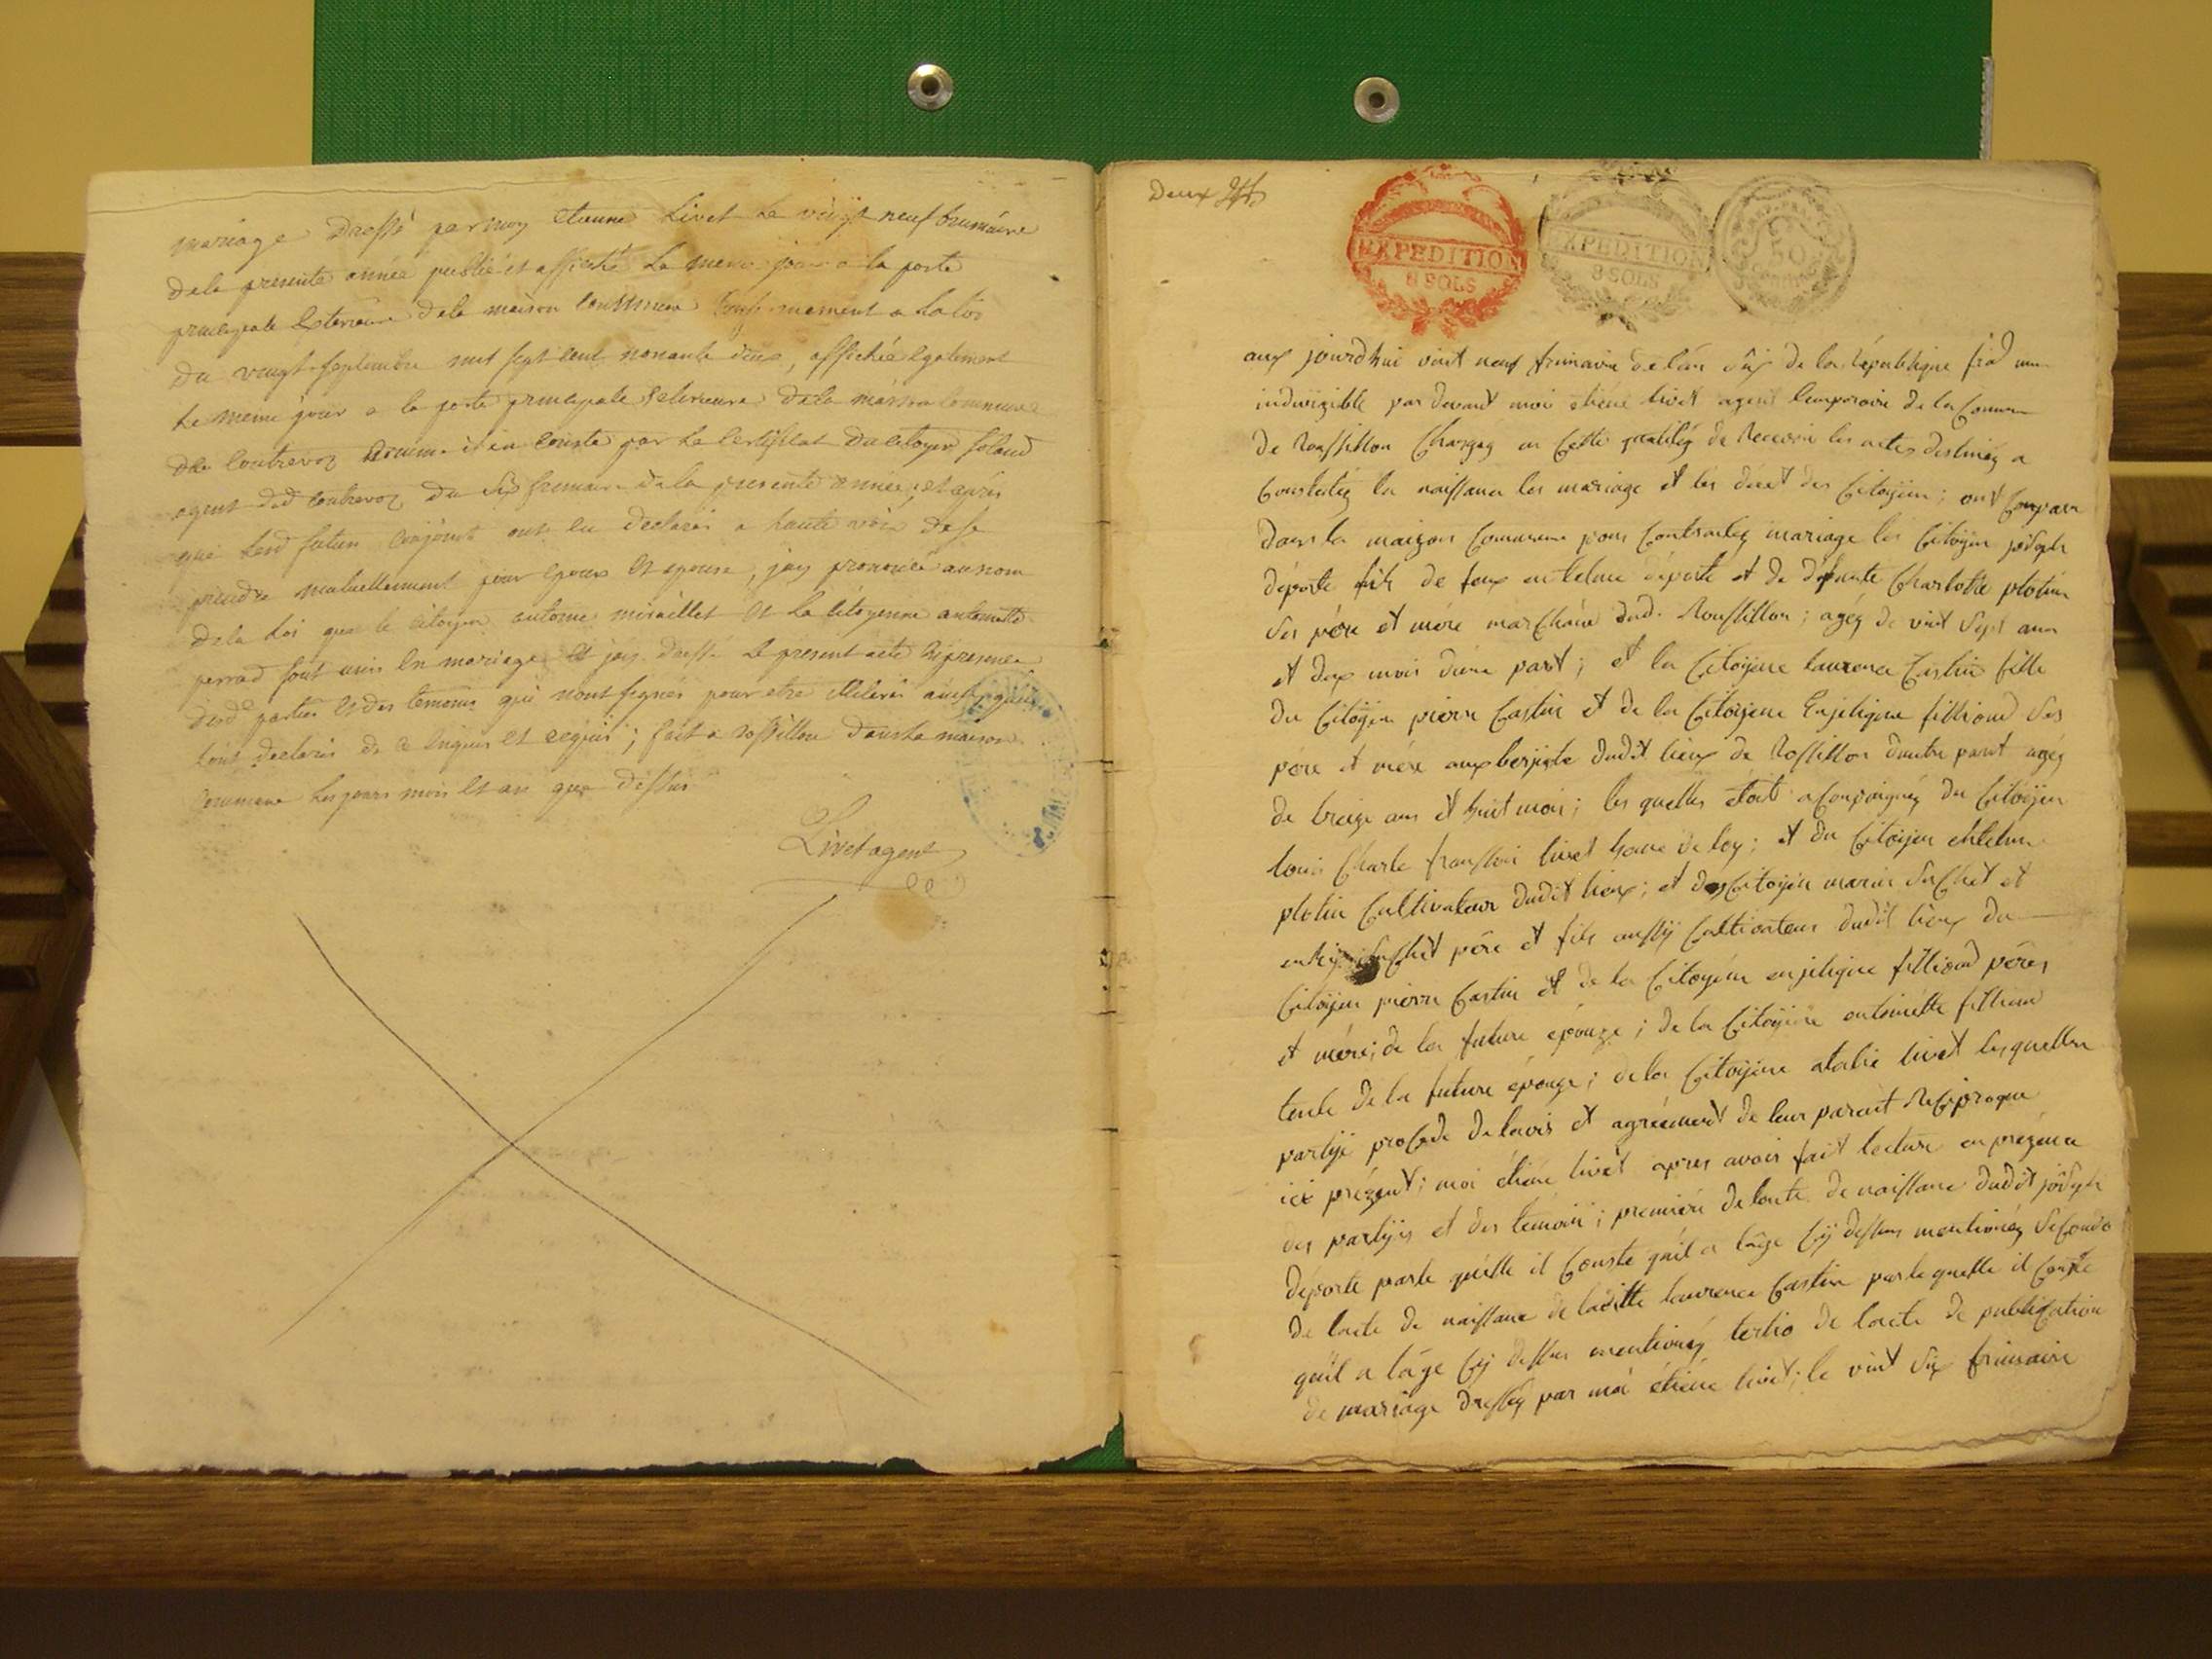 mariage Dressé par moy etienne Livet Le vingt neuf brumaire
dela presente année publié et affiché Le meme jour a la porte
principale Exterieure dela maison Commune Conformement a La Loi
du vingt Septembre mil sept cent nonante deux, affichée Egalement
Le meme jour a la porte principale Exterieure dela maison Commune
de Contrevoz Comme il en Conste par Le Certificat du citoyen
agent dud Contrevoz du Six frimaire dela presente année, et après
que Lesd futur Conjoint ont eu declaré a haute voix de se
prendre mutuellement pour epoux Et epouse, jay prononcé au nom
dela Loi que le citoyen antoine miraillet Et La Citoyenne antoinette
perrad sont unis En mariage Et jay dressé Le present acte En presence
desd parties Et des temoins qui nont signés pour etre illeterés ainsi quils
Lont declarés de ce Enquis Et requis; fait a rossillon dans la maison
Commune Les jours mois Et an que dessus
Livet agent
Deux
EXPEDITION
8 SOLS
EXPEDITION
8 SOLS
REP. FRA.
50
aux jourdhui vint neuf frimaire de lan Six de la République
indivizible par devant moi etiene livet agent temporaire de la Comune
de Roussillon Chargez en Cette qualitéz de Recevoir les actes destinéz a
Constatéz la naissance les mariage et les décét des Citoyien; ont Compari
dans la maizon Commune pour Contractéz mariage les Citoyen josèph
déporte fils de feux entelme déporte et de défunte Charlotte plotin
Ses pére et mére marchand dud. Roussillon; agéz de vint Sept ans
et dix mois dune part; et la Citoÿene laurence Castin fille
du Citoÿen pierre Castin et de la Citoÿene Enjelique filliond Ses
pére et mére auxberjiste dudit lieux de Rossillon dautre part agéz
de treize ans et huit mois; les quelles étoit aCompaignéz du Citoÿen
louis Charle franssois livet home de loy; et du Citoÿen entelme
plotin Cultivateur dudit lieux; et des Citoÿen marin SuChet et
SuChet pére et fils aussÿ Cultivateur dudit lieux du
Citoÿen pierre Castin et de la Citoyéne enjelique filliond péres
et mére; de la future épouze; de la Citoÿéne antoinette filliond
tente de la future épouze; de la Citoÿéne atalie livet les quelles
partÿe proCede de lavis et agréement de leur parant ReCiproque
ici prézent; moi étiéne livet apres avoir fait lecture en prézence
des partÿes et des témoin; premiére de lacte de naissance dudit joséph
déporte parle quélle il Conste quil a lâge Cÿ dessus mentionéz SeCondo
De lacte de naissance de laditte laurence Castin par la quelle il Conste
quil a lâge Cÿ dessus mentionéz tertio de lacte de publiCation
de mariage dresséz par moi étiéne livet; le vint Six frimaire